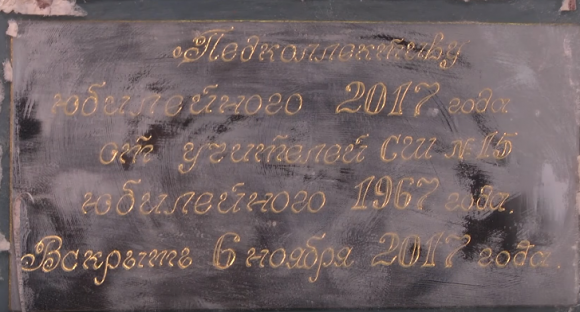 Педколлективу
юбилейного 2017 года
от учителей СШ №15
юбилейного 1967 года.
Вскрыть 6 ноября 2017 года.